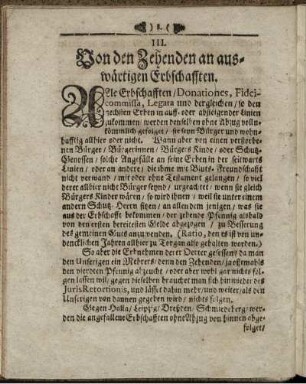 8.
III.
Von den Zehenden an aus-
wärtigen Erbschafften.
Alle Erbschafften / Donationes, Fidei-
commissa, Legata und dergleichen / so den
rechten Erben in auff- oder absteigender Linien
zukommen / werden denselben ohne Abzug voll-
kömmlich gefolget / sie seyn Bürger und wohn-
hafftig allhier oder nicht. Wann aber von einen verstorbe-
nen Bürger / Bürgerinnen / Bürgers Kinde / oder Schutz-
Genossen / solche Anfälle an seine Erben in der seitwarts
Linien / oder an andere / die ihme mit Bluts-Freundschafft
nicht verwand / mit oder ohne Testament gelangen / so viel
derer allhier nicht Bürger seynd / ungeachtet / wenn sie gleich
Bürgers Kinder wären / so wird ihnen / weil sie unter einem
andern Schutz-Herrn sitzen / an allem dem jenigen / was sie
aus der Erbschafft bekommen / der zehende Pfennig alsbald
von den ersten bereitesten Gelde abgezogen / zu Besserung
des gemeinen Guts anzuwenden, (Ratio, den es ist von un-
dencklichen Jahren allhier zu Torgau also gehalten worden.)
So aber die Erbnehmen derer Oerter gesessen / da man
den Unserigen ein Mehrers, denn den Zehenden / ja offtmals
den vierdten Pfennig abzeucht / oder aber wohl gar nichts fol-
gen lassen will / gegen dieselben brauchet man sich hinwieder des
Juris Retorsionis, und lässet dahin mehr / und weiter / als den
Unserigen von dannen gegeben wird / nichts folgen.
Gegen Halla / Leipzig / Dreßden / Schmiedeberg / wer-
den die angefallene Erbschafften ohne Abzug von hinnen abge-
folget /